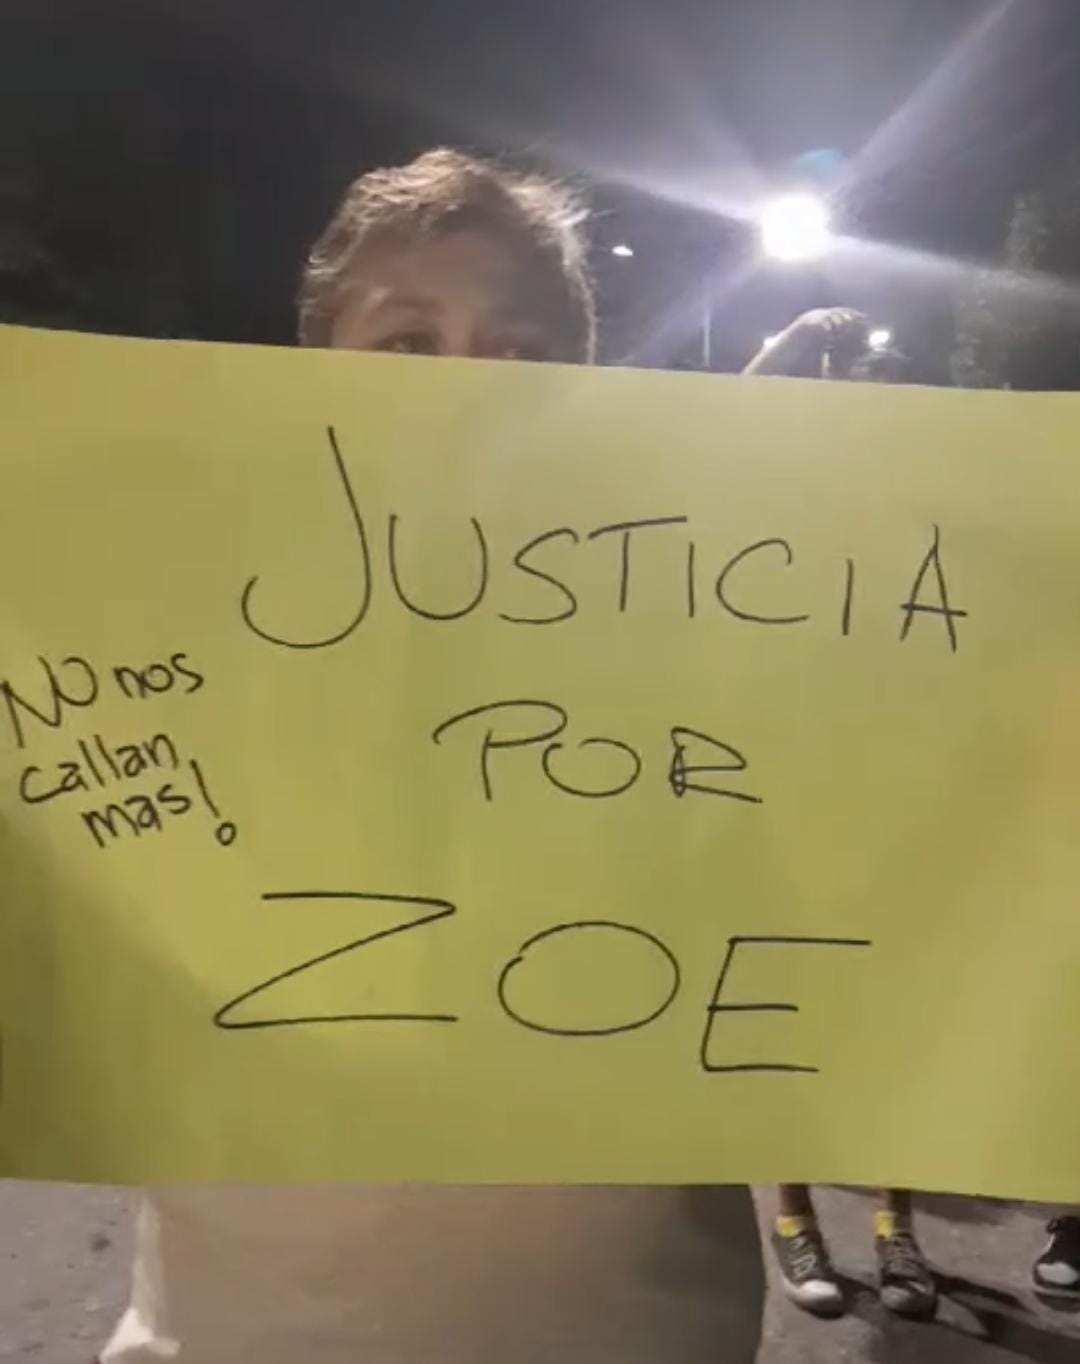 JUSTICIA
POR
ZOE
NO nos
callan
mas!